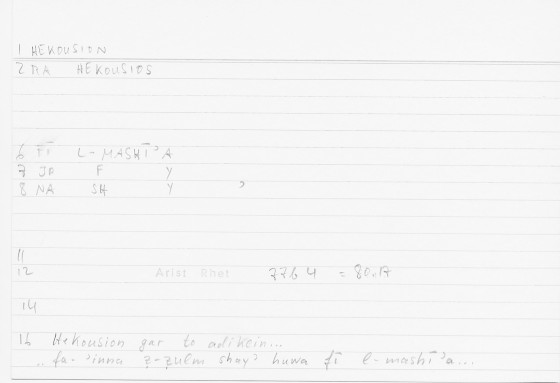 1 HEKOUSION
2 HA HEKOUSIOS
6 FĪ L-MASHĪʾA
7 JA F Y
8 NA SH Y ʾ
11
12 Arist Rhet 77b 4 = 80.17
14
16 Hekousion gar to adikein...
.. fa-ʾinna ẓ-ẓulm shayʾ huwa fī l-mashīʾa...